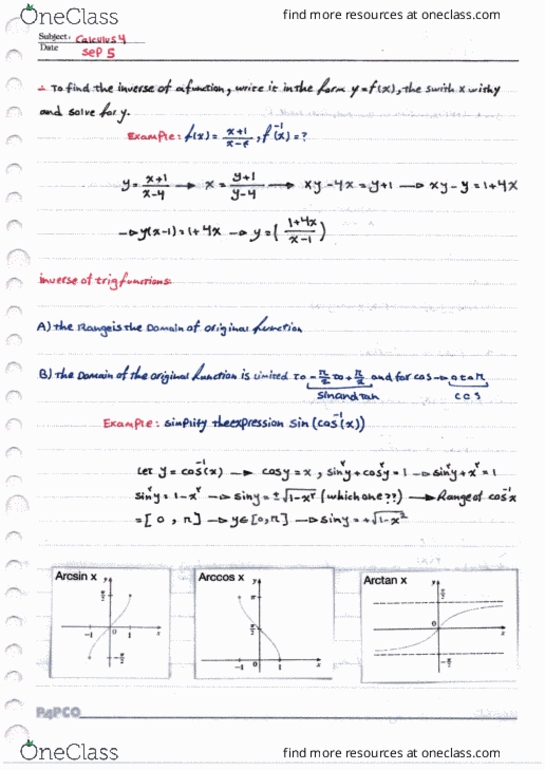 OneClass find more resources at oneclass.com
Subject: Calculus 4
Date Sep 5
To find the inverse of a function, write it in the form y=f(x), the swith x withy
and solve for y.
Example: f(x) = x+1/x-4, f⁻¹(x)=?
y = x+1/x-4 → x = y+1/y-4 → xy-4x = y+1 → xy-y = 1+4x
→ y(x-1) = 1+4x → y = (1+4x/x-1)
inverse of trig functions:
A) the Range is the Domain of original function
B) The Domain of the original function is limited to -π/2 to +π/2 and for cos → 0 to π
sin and tan cos
Example: simplity the expression sin (cos⁻¹(x))
Let y = cos⁻¹(x) → cosy = x, sin²y + cos²y = 1 → sin²y + x² = 1
sin²y = 1-x² → siny = ±√1-x² (which one??) → Range of cos⁻¹x
= [0, π] → y∈[0,π] → siny = +√1-x²
Arcsin x Arccos x Arctan x
y π/2 -1 0 1 x -π/2
y π π/2 -1 0 1 x
y π/2 0 x -π/2
PAPCO
OneClass find more resources at oneclass.com